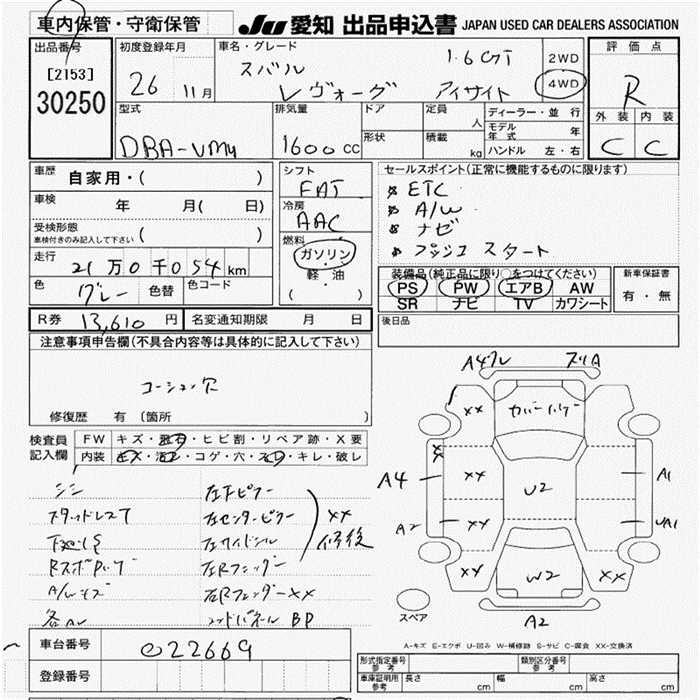 車内保管・守衛保管
JU 愛知 出品申込書 JAPAN USED CAR DEALERS ASSOCIATION
出品番号
[2153]
30250
初度登録年月
26 11月
車名・グレード
スバル 1.6GT
レヴォーグ アイサイト
2WD
4WD
評価点
R
外装 内装
C C
型式
DBA-VM4
排気量
1600cc
ドア
形状
定員
人
積載
kg
ディーラー・並行
モデル年式 年
ハンドル 左・右
車歴
自家用・( )
車検
年 月( 日)
受検形態
車検付きのみ記入して下さい ( )
走行
21万0千054km
色
グレー
色替
色コード
シフト
FAT
冷房
AAC
燃料
ガソリン
軽・油
( )
セールスポイント(正常に機能するものに限ります)
ETC
A/W
ナビ
プッシュスタート
装備品(純正品に限り○をつけてください)
PS PW エアB AW
SR ナビ TV カワシート
新車保証書
有・無
R券 13,610円
名変通知期限 月 日
後日品
注意事項申告欄(不具合内容等は具体的に記入して下さい)
コーション穴
修復歴 有 〔箇所
検査員記入欄
FW キズ・飛石・ヒビ割・リペア跡・X要
内装 キズ・汚レ・コゲ・穴・スレ・キレ・破レ
スタッドレスT
左センターピラー
XX
修復
左Rフェンダーxx
BP
車台番号
022669
登録番号
A4 スリA
XX カバー
A4 XX U2 A1
A2 XX UA1
XX W2 XX
スペア
A2
A-キズ E-エクボ U-凹み W-補修跡 S-サビ C-腐食 XX-交換済
形式指定番号 参考
類別区分番号 参考
車庫証明用 参考
長さ cm
幅 cm
高さ cm